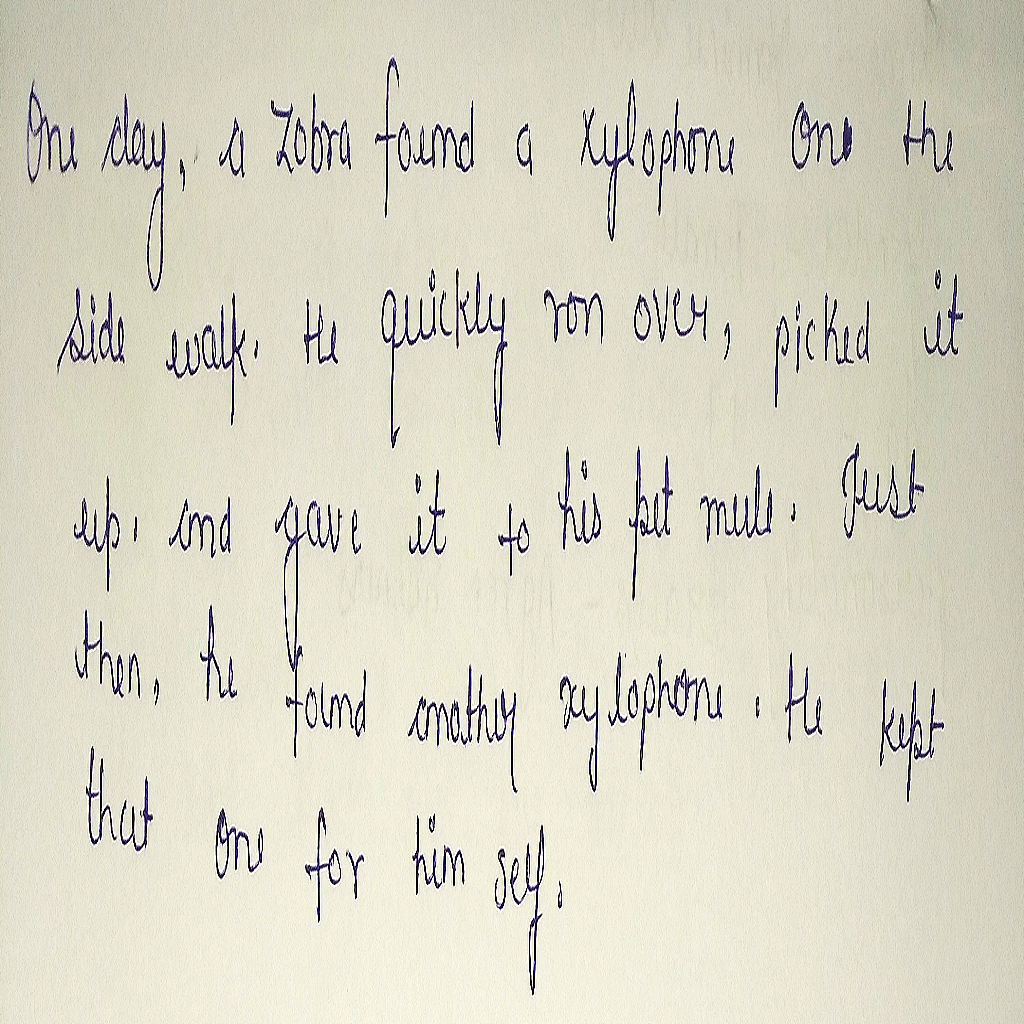 One day, a Zobra found a xylophone one the
side walk. He quickly ron over, picked it
up. and gave it to his pet mule. Just
then, he found another xylophone. He kept
that one for him self.